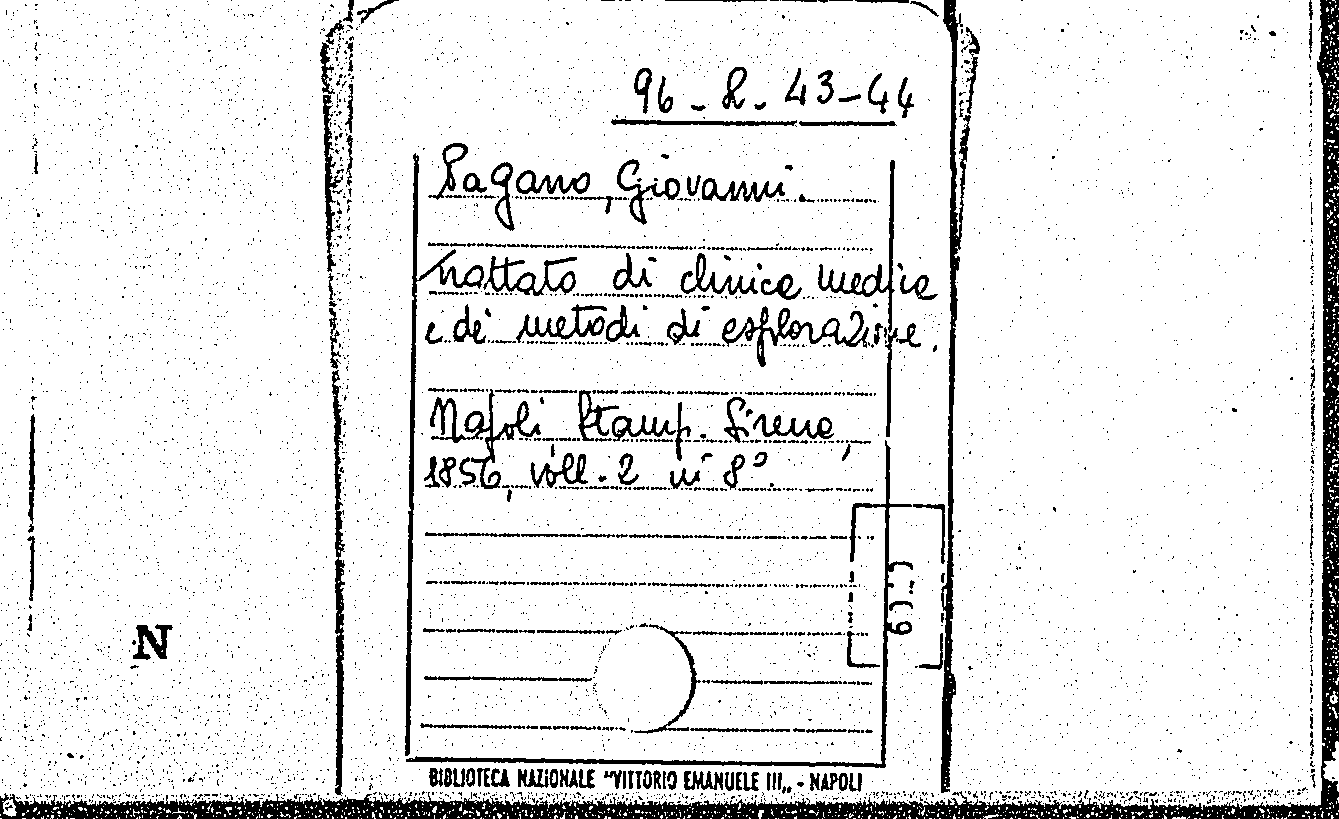 96 - L. 43-44
Pagano, Giovanni.
Trattato di clinica medica
e de' metodi di esplorazione.
Napoli, Stamp. Sirena,
1856, voll. 2 in 8°.
N
BIBLIOTECA NAZIONALE "VITTORIO EMANUELE III„ - NAPOLI